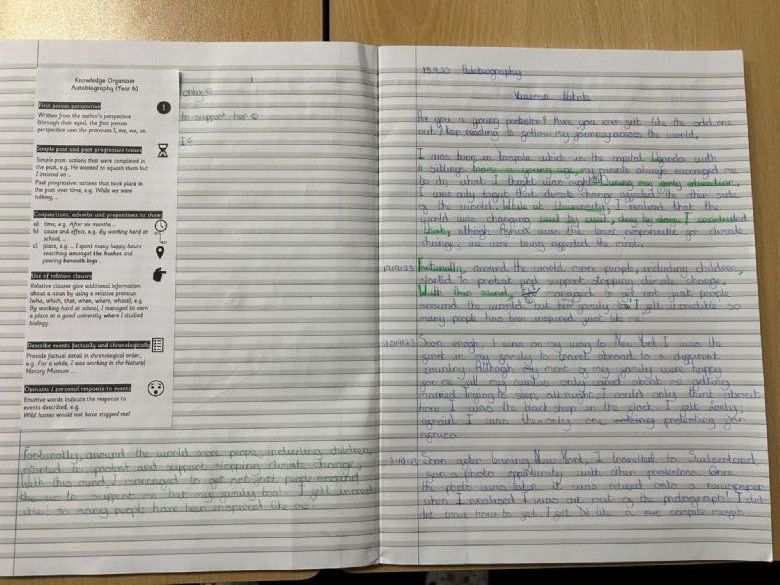 Knowledge Organiser
Autobiography (Year 6)
First person perspective
1
Written from the author's perspective
(through their eyes), the first person
perspective uses the pronouns I, me, we, us.
Simple past and past progressive tenses
Simple past: actions that were completed in
the past, e.g. He wanted to squash them but
I insisted on ...
Past progressive: actions that took place in
the past over time, e.g. While we were
talking, ...
Conjunctions, adverbs and prepositions to show:
a) time, e.g. After six months ...
b) cause and effect, e.g. By working hard at
school, ...
c) place, e.g. ... I spent many happy hours
searching amongst the bushes and
peering beneath logs ...
Use of relative clauses
Relative clauses give additional information
about a noun by using a relative pronoun
(who, which, that, when, where, whose), e.g.
By working hard at school, I managed to earn
a place at a good university where I studied
biology.
Describe events factually and chronologically
Provide factual detail in chronological order,
e.g. For a while, I was working in the Natural
History Museum ...
Opinions / personal response to events
Emotive words indicate the response to
events described, e.g.
Wild horses would not have stopped me!
only
to support her
Fortunatly, around the world more people, including children,
started to protest and support stopping climate change.
With this mind, I managed to get not just people around
the to support me but my family too! I felt incred
ible! so many people have been inspired like me!
13.9.23 Autobiography
Vanessa Nakate
Are you a young protestor? Have you ever felt like the odd one
out? keep reading to follow my journey across the world.
I was born in kampala which in the capital Uganda with
4 siblings. From a young age, my parents always encouraged me
to do what I thought was right. During my early education,
I was only taught that climate change affected the other side
of the world. While at University, I realised that the
world was changing week by week, day by day. I concluded
that, althogh Africa was the least responsible for climate
change, we were being affected the most.
Fortunatly, around the world more people, including children,
started to protest and support stopping climate change.
With this mind, I managed to get not just people
around the world but my family I felt incredible so
many people has been inspired just like me.
Soon enogh, I was on my way to New York. I was the
first in my family to travel abroad to a different
country. Althogh my most of my family were happy
for me all my aunties only cared about me getting
married. Trying to sleep all night, I could only think about
how I was the black sheep in the flock. I felt lonly;
afraid I was the only one protesting for
africa.
Soon after leaving New York, I travelled to Switzerland
for a photo opportunity with other protestors. Once
the photo was taken it was relised onto a newspaper
when I realised I was cut out of the photograph! I did-
nt know how to feel. I felt